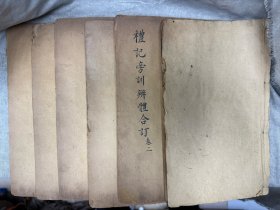 禮記旁訓辨體合訂卷二